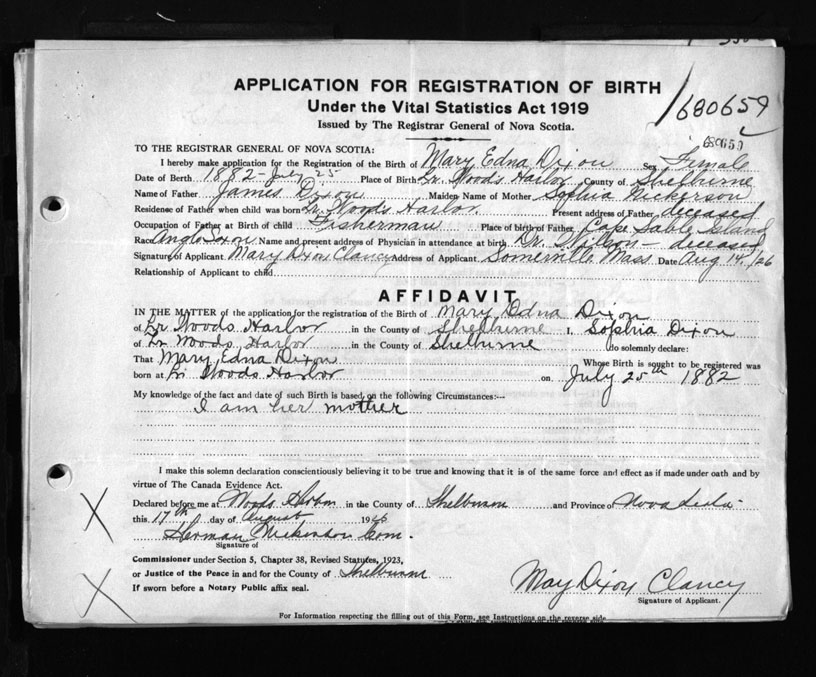 APPLICATION FOR REGISTRATION OF BIRTH
Under the Vital Statistics Act 1919
Issued by The Registrar General of Nova Scotia.
680659
680659
TO THE REGISTRAR GENERAL OF NOVA SCOTIA:
I hereby make application for the Registration of the Birth of Mary Edna Dixon Sex Female
Date of Birth 1882 - July 25 Place of Birth Lr. Woods Harbor County of Shelburne
Name of Father James Dixon Maiden Name of Mother Sophia Nickerson
Residence of Father when child was born Lr. Woods Harbor Present address of Father deceased
Occupation of Father at Birth of child Fisherman Place of birth of Father Cape Sable Island
Race Anglo Saxon Name and present address of Physician in attendance at birth Dr. Wilson - deceased
Signature of Applicant Mary Dixon Clancy Address of Applicant Somerville Mass. Date Aug 14, /26
Relationship of Applicant to child
AFFIDAVIT
IN THE MATTER of the application for the registration of the Birth of Mary Edna Dixon
of Lr Woods Harbor in the County of Shelburne I, Sophia Dixon
of Lr Woods Harbor in the County of Shelburne do solemnly declare:
That Mary Edna Dixon Whose Birth is sought to be registered was
born at Lr Woods Harbor on July 25th 1882
My knowledge of the fact and date of such Birth is based on the following Circumstances:--
I am her mother
I make this solemn declaration conscientiously believing it to be true and knowing that it is of the same force and effect as if made under oath and by
virtue of The Canada Evidence Act.
Declared before me at Woods Harbor in the County of Shelburne and Province of Nova Scotia
this 17th day of August 1926
Herman Nickerson Com.
Signature of
Commissioner under Section 5, Chapter 38, Revised Statutes, 1923,
or Justice of the Peace in and for the County of Shelburne
If sworn before a Notary Public affix seal.
May Dixon Clancy
Signature of Applicant.
For Information respecting the filling out of this Form, see Instructions on the reverse side